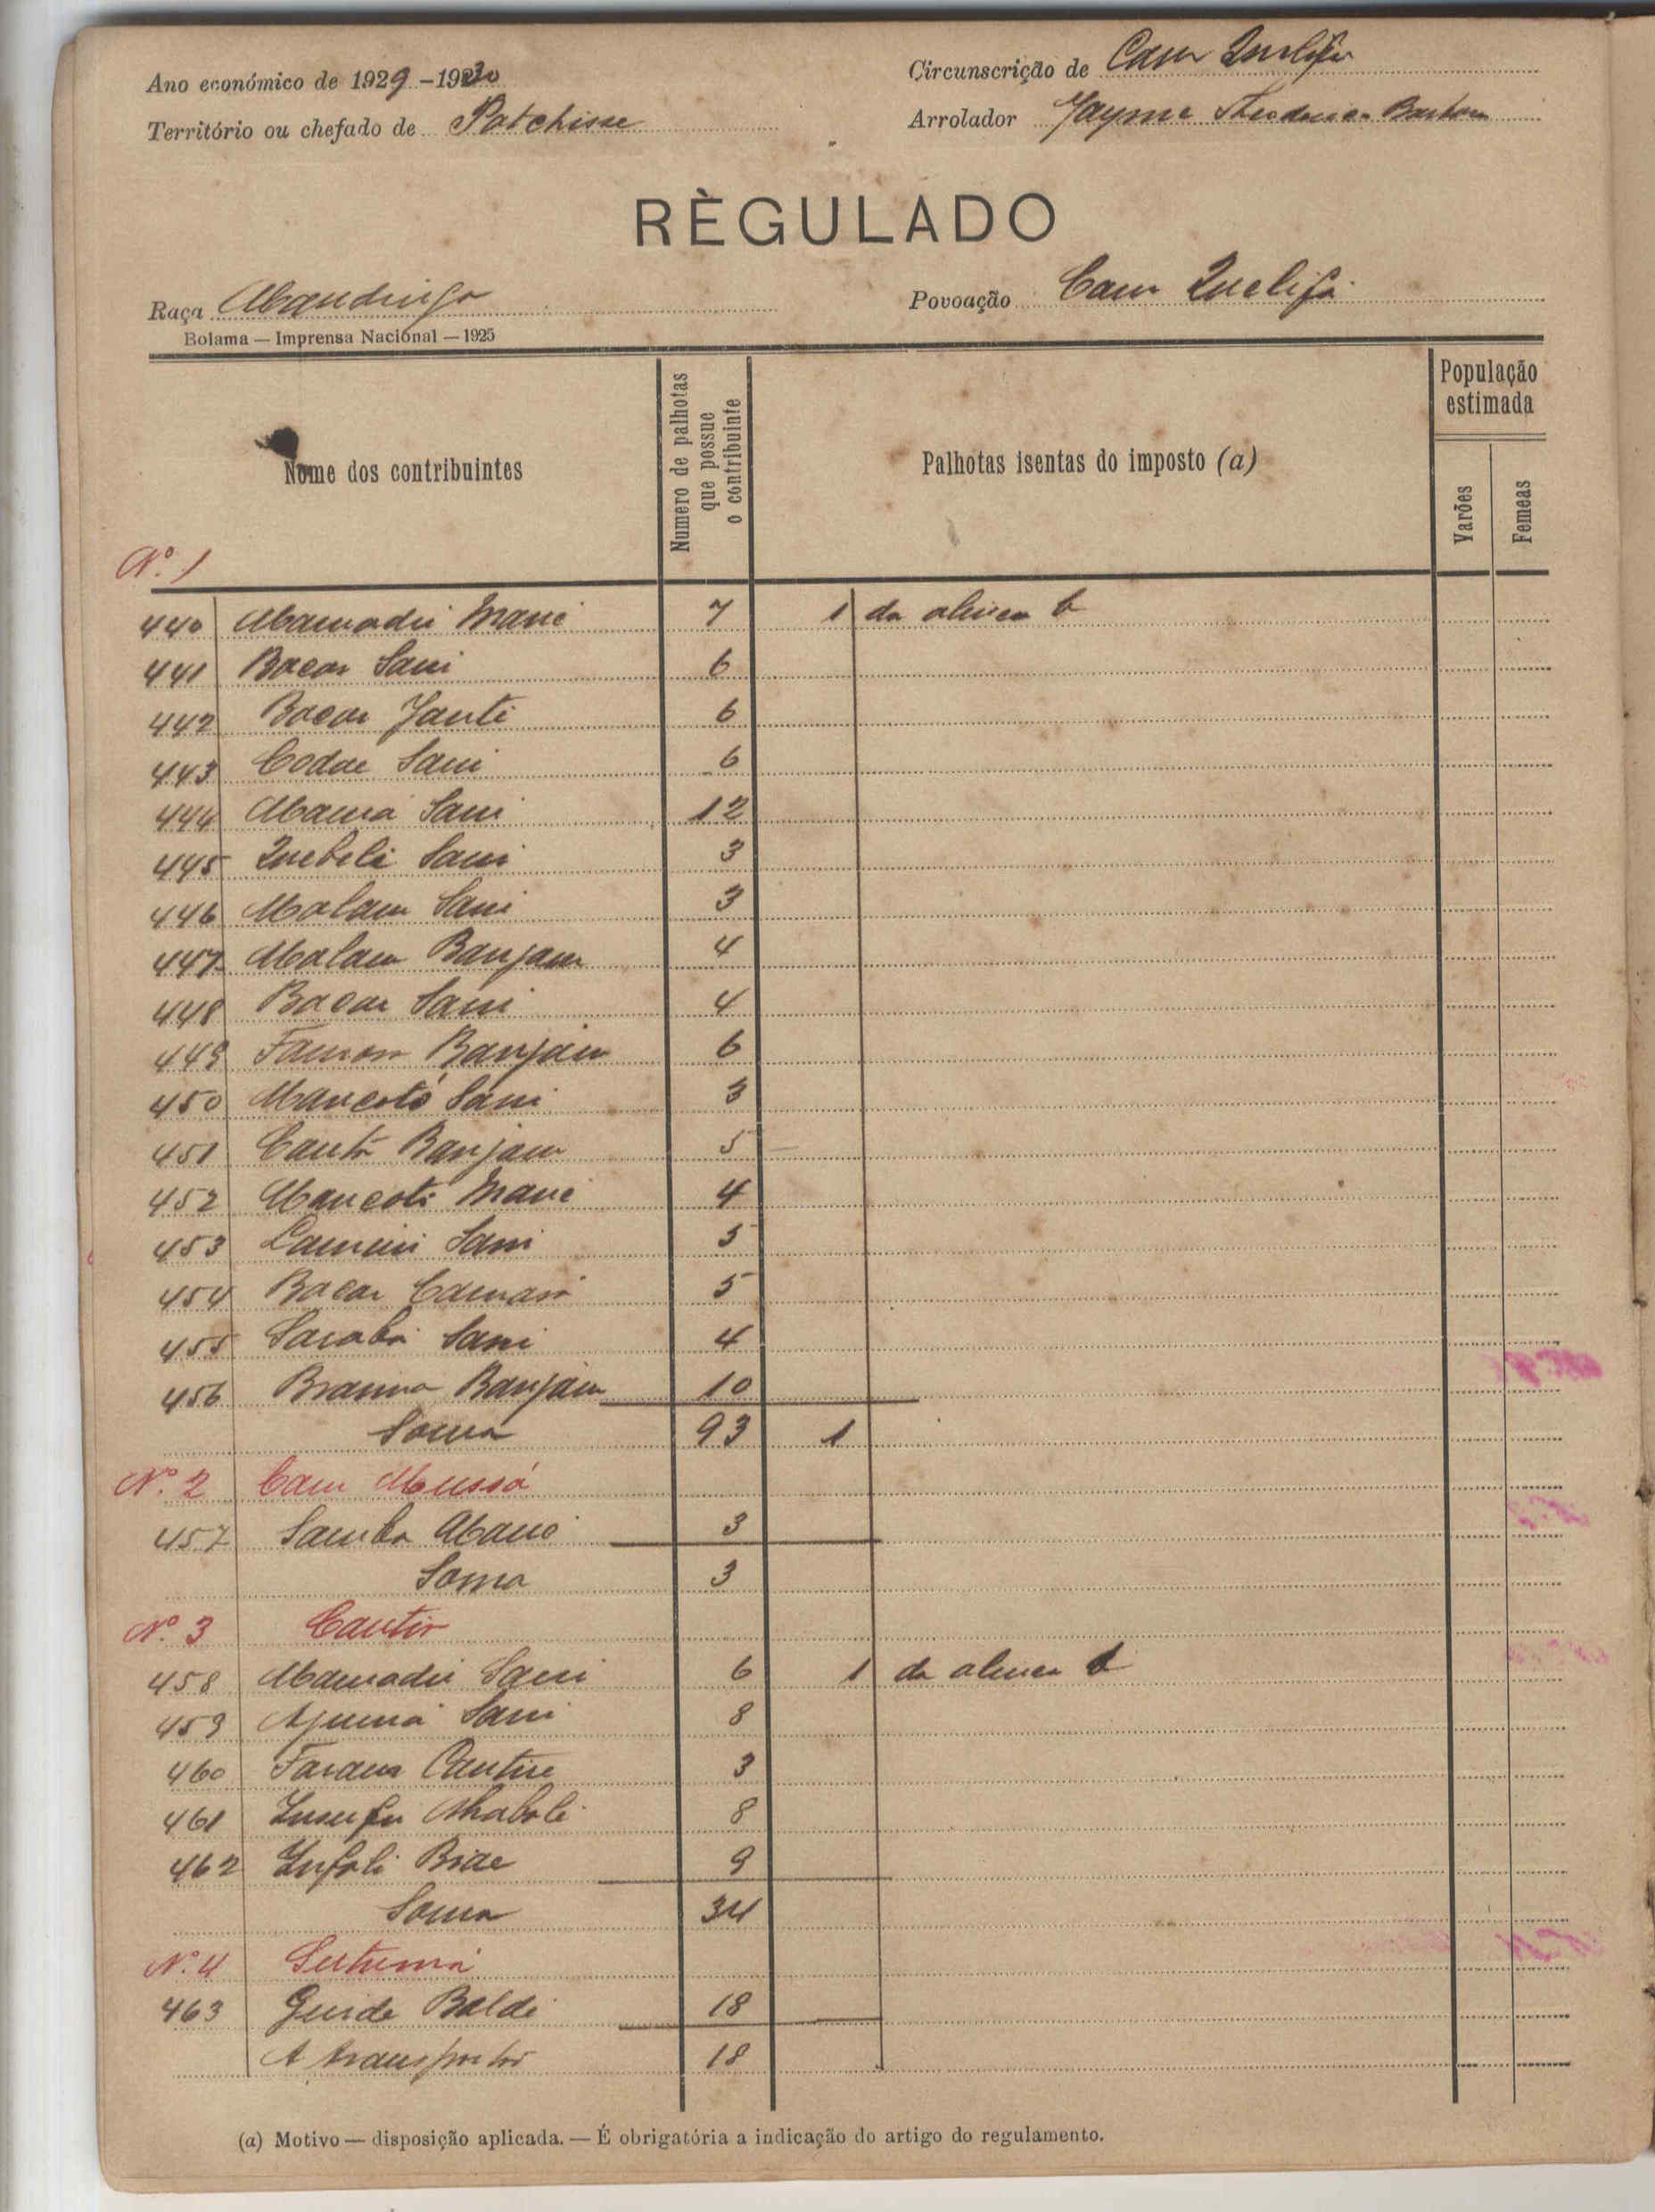 Ano económico de 1929-1930
Circunscrição de Cam Quelifa
Território ou chefado de Patchisse
Arrolador Jayme Theodoro Barbosa
RÈGULADO
Raça Mandinga
Povoação Cam Quelifá
Bolama — Imprensa Nacional — 1925
Nome dos contribuintes
Numero de palhotas que possue o contribuinte
Palhotas isentas do imposto (a)
População estimada
Varões
Femeas
Nº. 1
440 Mamadú Mané 7 1 da alinea b
441 Bacar Sani 6
442 Bacar Janti 6
443 Codae Sani 6
444 Mamá Sani 12
445 Quebeli Sani 3
446 Malam Sani 3
447 Malam Banjam 4
448 Bacar Sani 4
449 Banjam 6
450 Mancotó Sani 3
451 Cantó Banjam 5
452 Mancoti Mané 4
453 Lamini Sani 5
454 Bacar Camará 5
455 Sani 4
456 Brama Banjam 10
Soma 93 1
Nº. 2 Cam Mussá
457 Samba Mané 3
Soma 3
Nº. 3 Cantir
458 Mamadú Sani 6 1 da alinea b
459 Ajumá Sani 8
460 Faram Cantire 3
461 8
462 Infali Biae 9
Soma 34
Nº. 4 Sutumá
463 Guide Baldé 18
A transportar 18
(a) Motivo — disposição aplicada. — É obrigatória a indicação do artigo do regulamento.